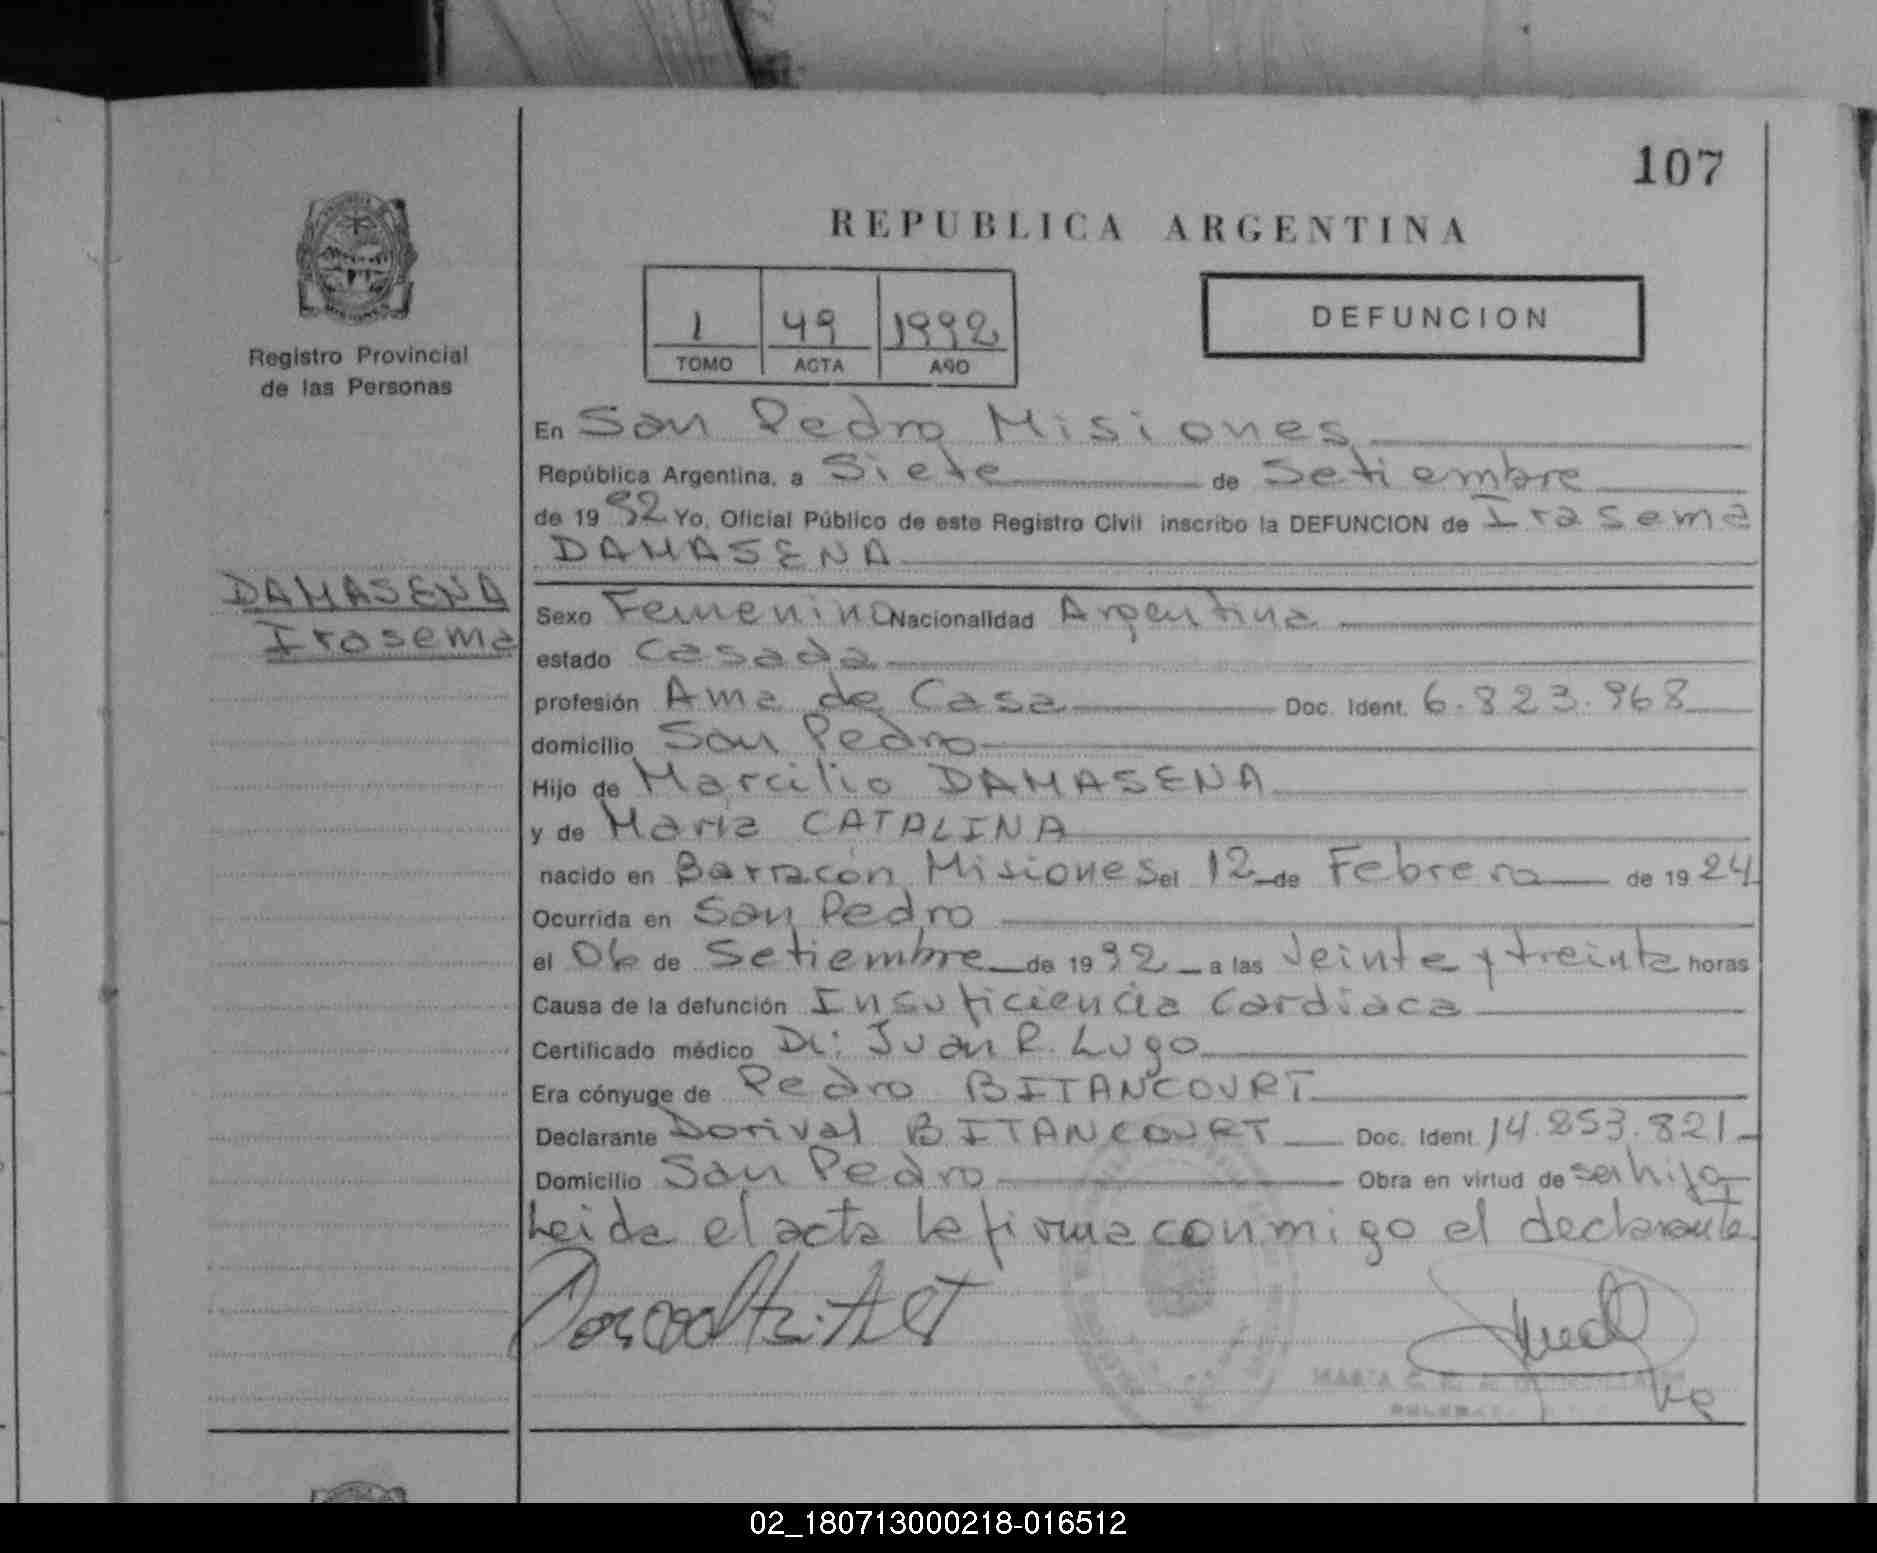 107
REPUBLICA ARGENTINA
Registro Provincial
de las Personas
1 49 1992
TOMO ACTA AÑO
DEFUNCION
En San Pedro Misiones
República Argentina, a Siete de Setiembre
de 19 92 Yo, Oficial Público de este Registro Civil inscribo la DEFUNCION de Irasema
DAMASENA
DAMASENA
Irasema
Sexo Femenino Nacionalidad Argentina
estado Casada
profesión Ama de Casa Doc. Ident. 6.823.968
domicilio San Pedro
Hijo de Marcilio DAMASENA
y de María CATALINA
nacido en Barracón Misiones el 12 de Febrero de 19 24
Ocurrida en San Pedro
el 06 de Setiembre de 19 92 a las Veinte y treinta horas
Causa de la defunción Insuficiencia Cardiaca
Certificado médico Dr: Juan R. Lugo
Era cónyuge de Pedro BITANCOURT
Declarante Dorival BITANCOURT Doc. Ident. 14.853.821
Domicilio San Pedro Obra en virtud de ser hijo
Leida el acta la firma conmigo el declarante
02_180713000218-016512